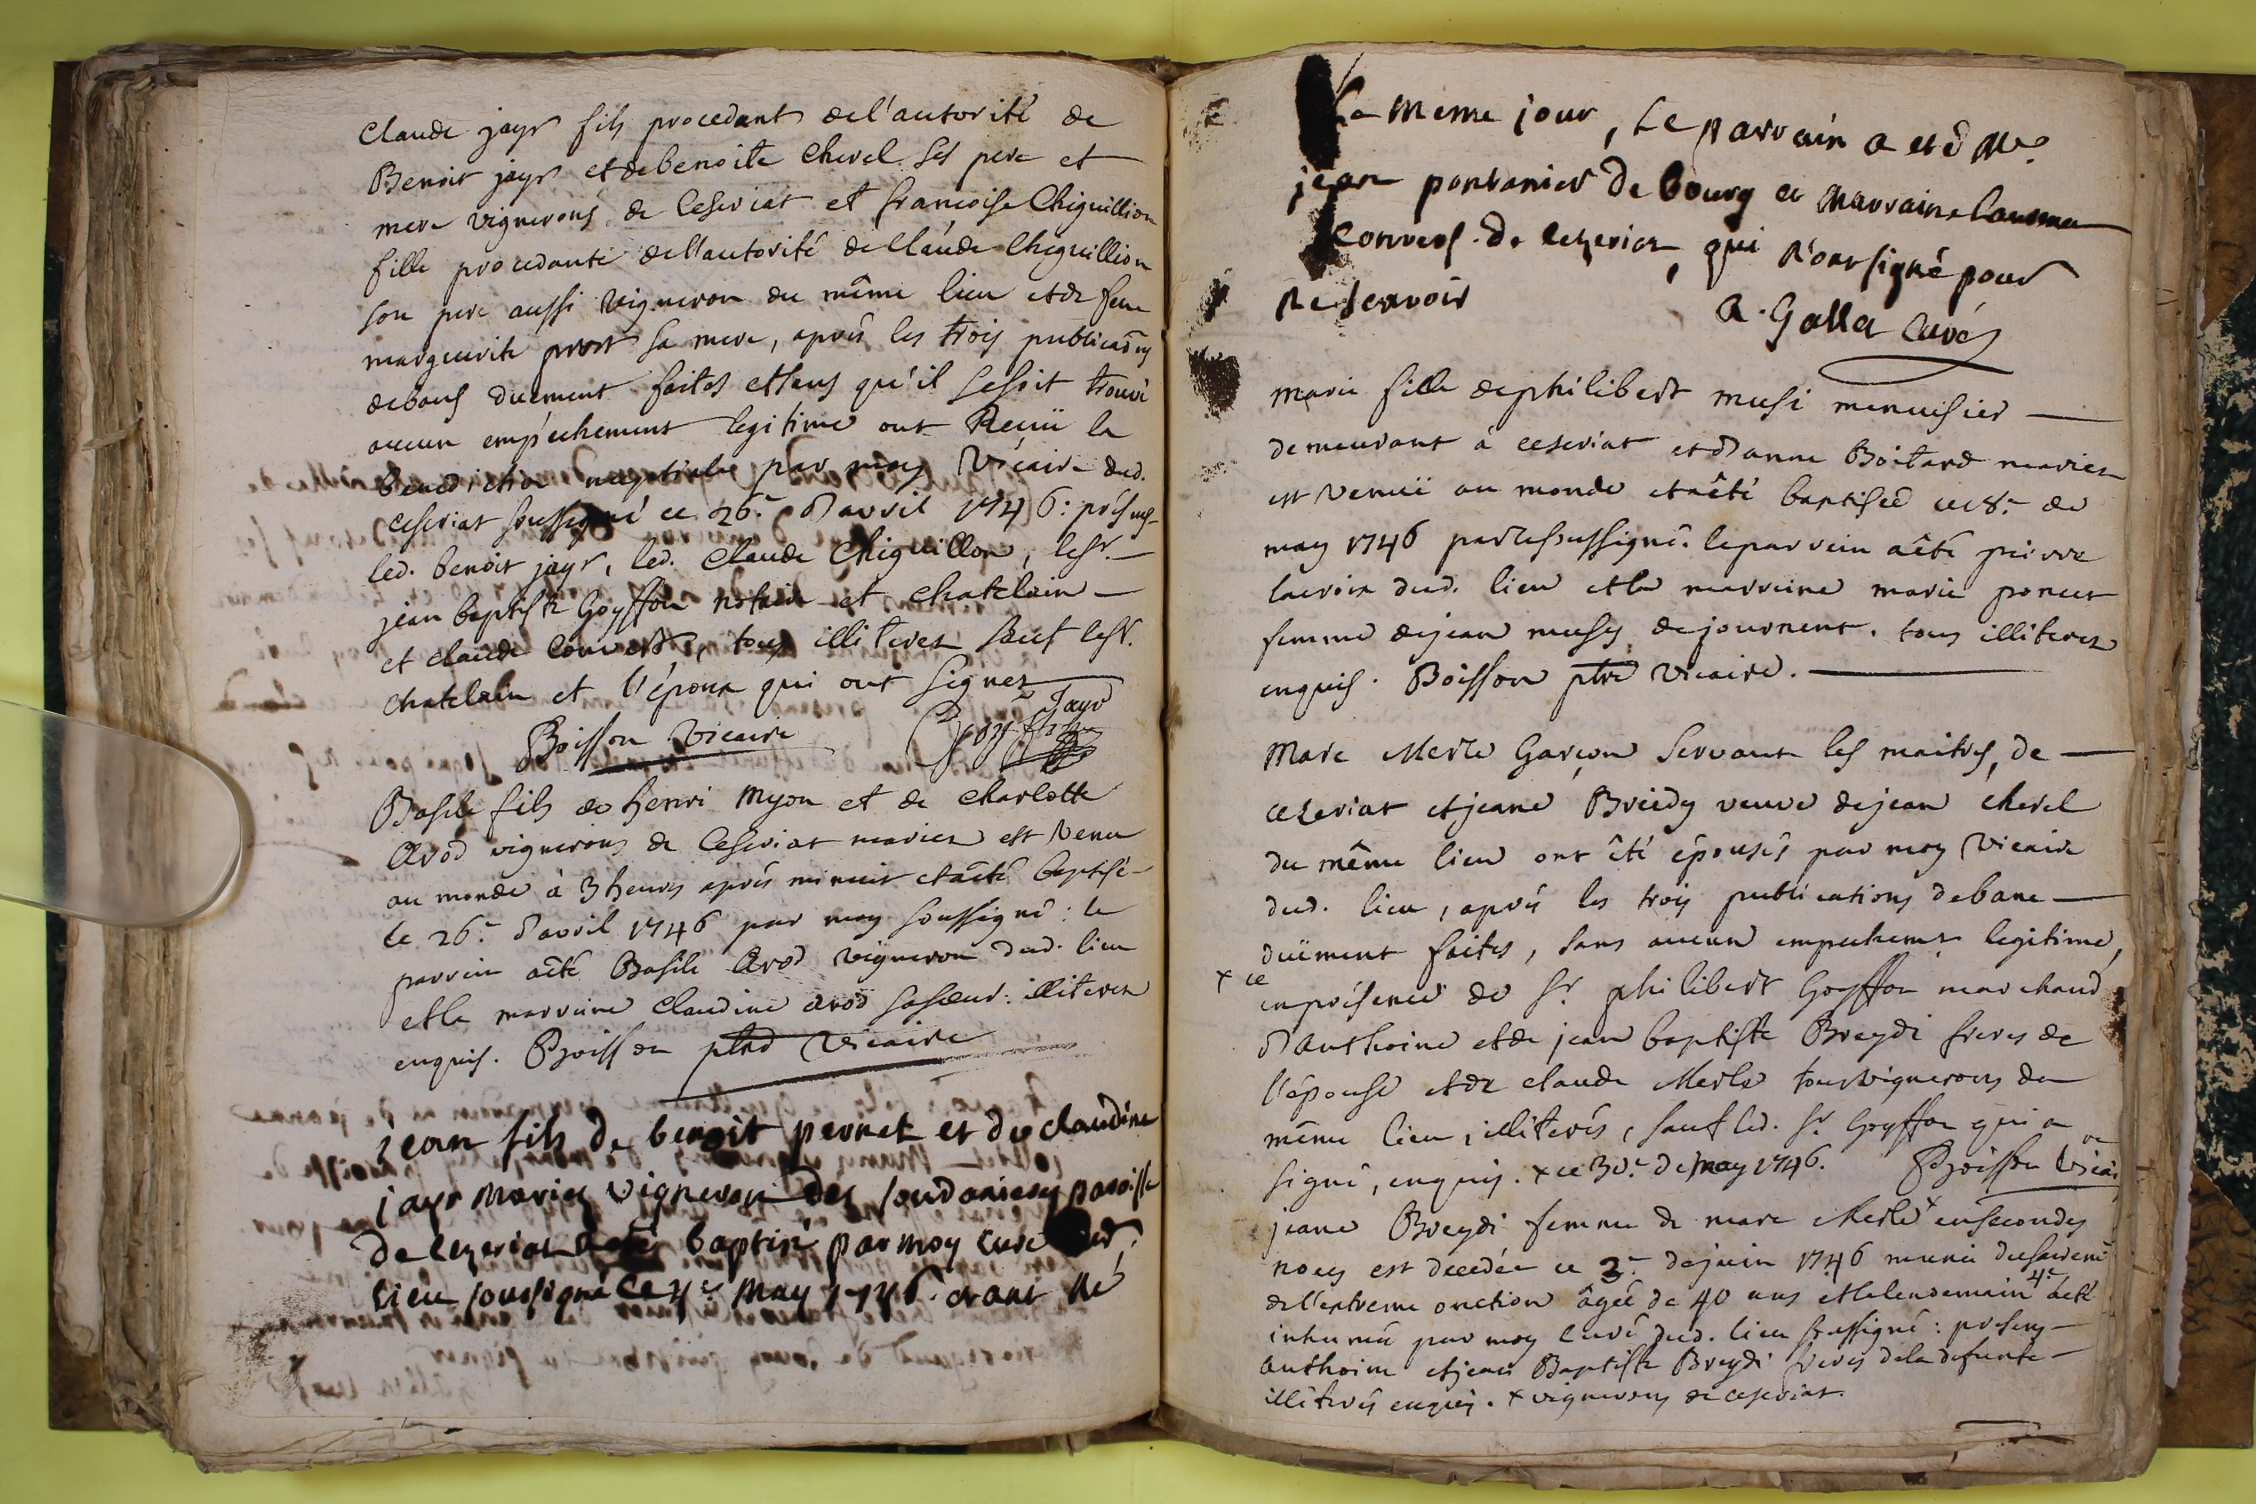 Claude jayr fils procedant de l'autorité de
Benoit jayr et de benoite Chevel ses pere et
mere vignerons de Ceseriat et francoise Chiguillion
fille procedante de l'autorité de Claude Chiguillion
son pere aussi vigneron du même lieu et de feue
marguerite prost sa mere, aprés les trois publicaõns
de bans duement faites et sans qu'il se soit trouvé
aucun empéchement legitime ont Recüü la
benediction nuptialle par moy Vicaire dud.
Ceseriat soussigné ce 26e. d'avril 1746: présens
led. benoit jayr, led. Claude Chiguillon, le sr.
jean baptiste Goyffon notaire et chatelain
et claude Convert, tous illiterez sauf le sr.
chatelain et l'époux qui ont signez
Jayr
Boisson Vicaire Goyffon
Basile fils de henri Myon et de Charlotte
Arod vignerons de Ceseriat mariez est venu
au monde à 3 heures aprés minuit et a êté baptisé
le 26e. d'avril 1746 par moy soussigné: le
parrein a êté Basile Arod vigneron dud. lieu
et la marreine Claudine arod sa soeur: illiterez
enquis. Boisson ptre Vicaire
jean fils de benoit pernet et de claudine
jayr mariez vignerons des soudanieres paroisse
de Cezeriat a eté baptisé par moy curé dud.
lieu soussigné ce 4e. may 1746. etant né
Le meme jour, Le parrain a eté Me.
jean pontanier de bourg et marraine
Convers de Cezeriat, qui n'ont signé pour
ne scavoir
A. Gallet curé
marie fille de philibert musi menuisier
demeurant à ceseriat et d'anne Boitard mariez
est venüe au monde et a êté baptisée ce 8e. de
may 1746 par le soussigné. le parrein a êté pierre
lacroix dud. lieu et la marreine marie poncet
femme de jean musy de journent. tous illiterez
enquis. Boisson ptre Vicaire.
Marc Merle Garçon servant les maitres, de
cezeriat et jeane Breidy veuve de jean chevel
du même lieu ont êté épousés par moy vicaire
dud. lieu, aprés les trois publications de bans
düement faites, sans aucun empechement legitime,
x ce
en présence de Sr. philibert Goyffon marchand
d'Anthoine et de jean baptiste Breydi freres de
l'épouse et de claude Merle tous vignerons du
même lieu, illiterés, sauf led. Sr. Goyffon qui a
signé, enquis. x ce 30e. de may 1746. Boisson Vicaire
jeane Breydi femme de marc Merle x en secondes
noces est decedée ce 3e. de juin 1746 munie du sacrement
de l'extreme onction âgée de 40 ans et le lendemain 4e. a êté
inhumée par moy Curé dud. lieu soussigné: presens
Anthoine et jean Baptiste Breydi freres de la defunte
illiterés enquis. x vignerons de ceseriat.